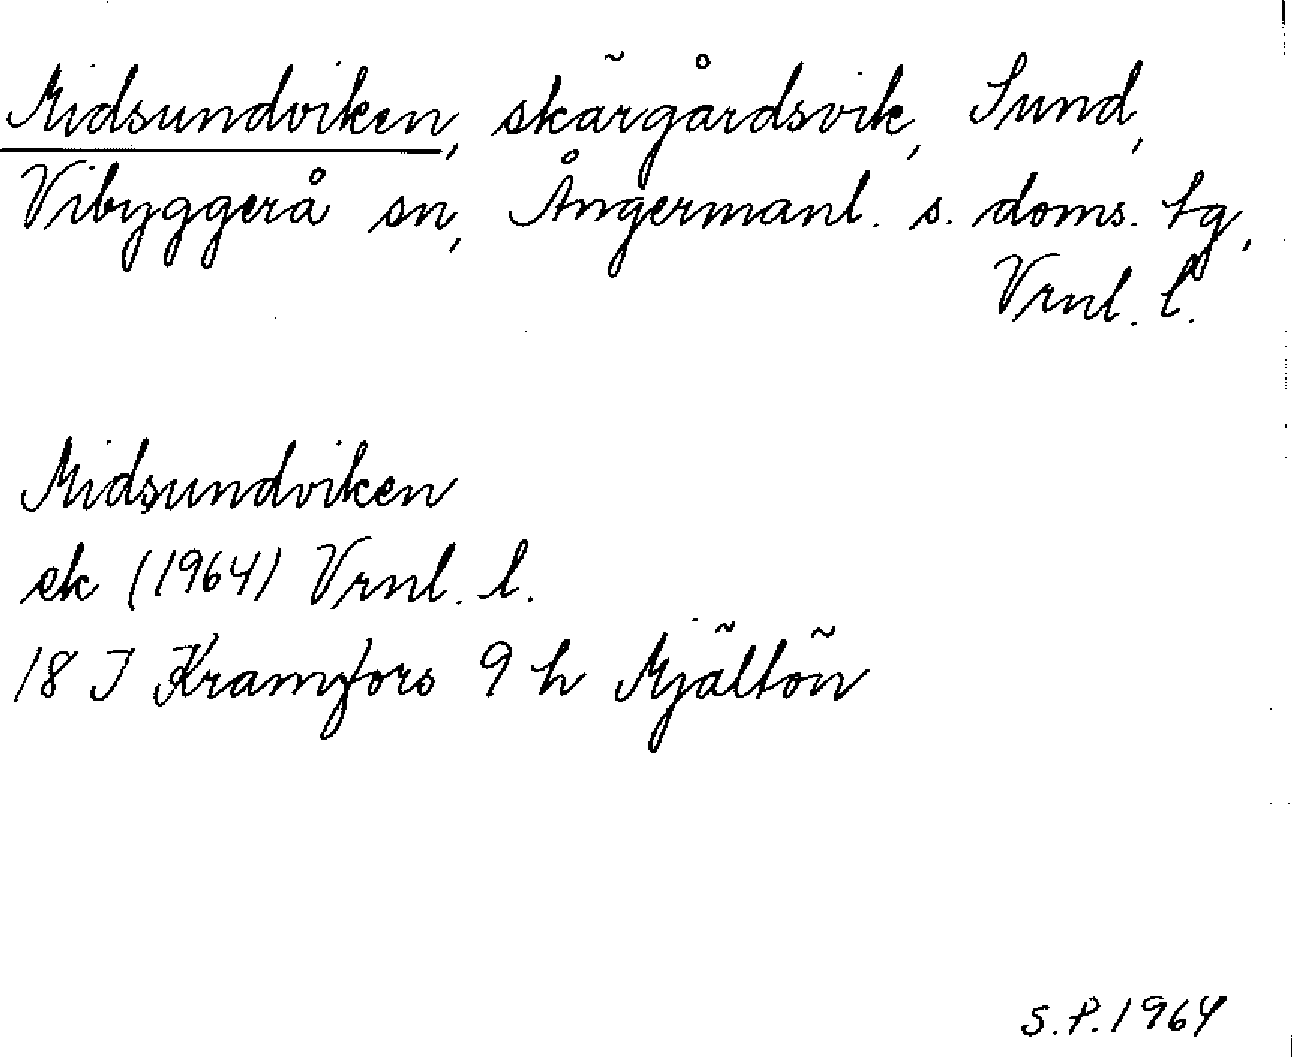 Midsundviken, skärgårdsvik, Sund,
Vibyggerå sn, Ångermanl. s. doms. tg,
Vrnl. l.
Midsundviken
ek (1964) Vrnl. l.
18 I Kramfors 9 h Mjältön
S.P. 1964